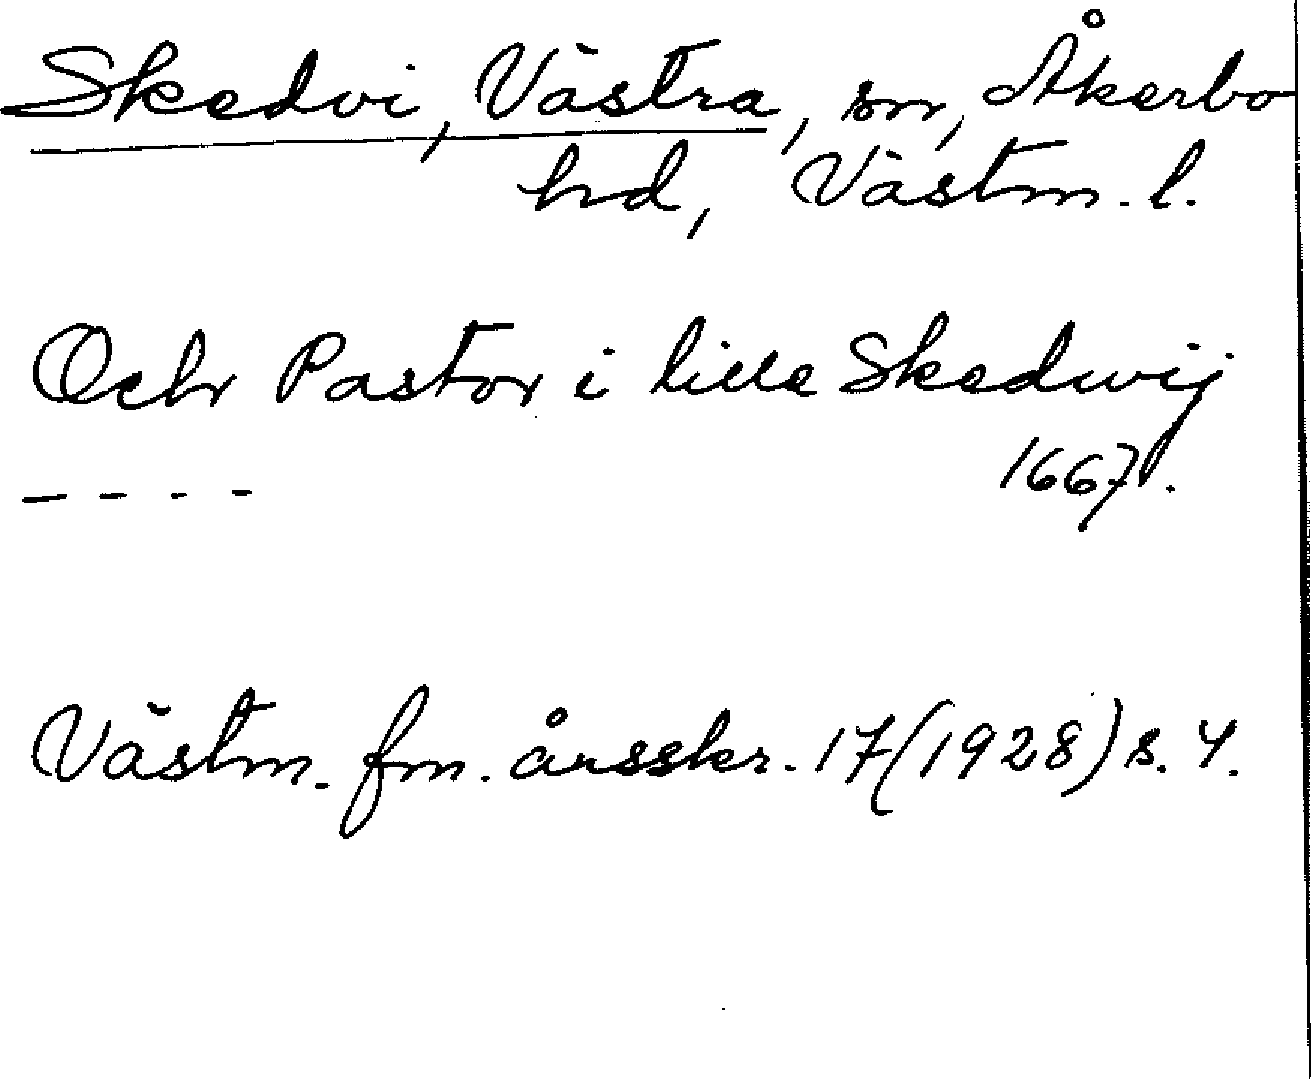 Skedvi, Västra, sn, Åkerbo
hd, Västm. l.
Och Pastor i lille Skedwij
- - - - 1667.
Västm. fm. årsskr. 17 (1928) s. 4.